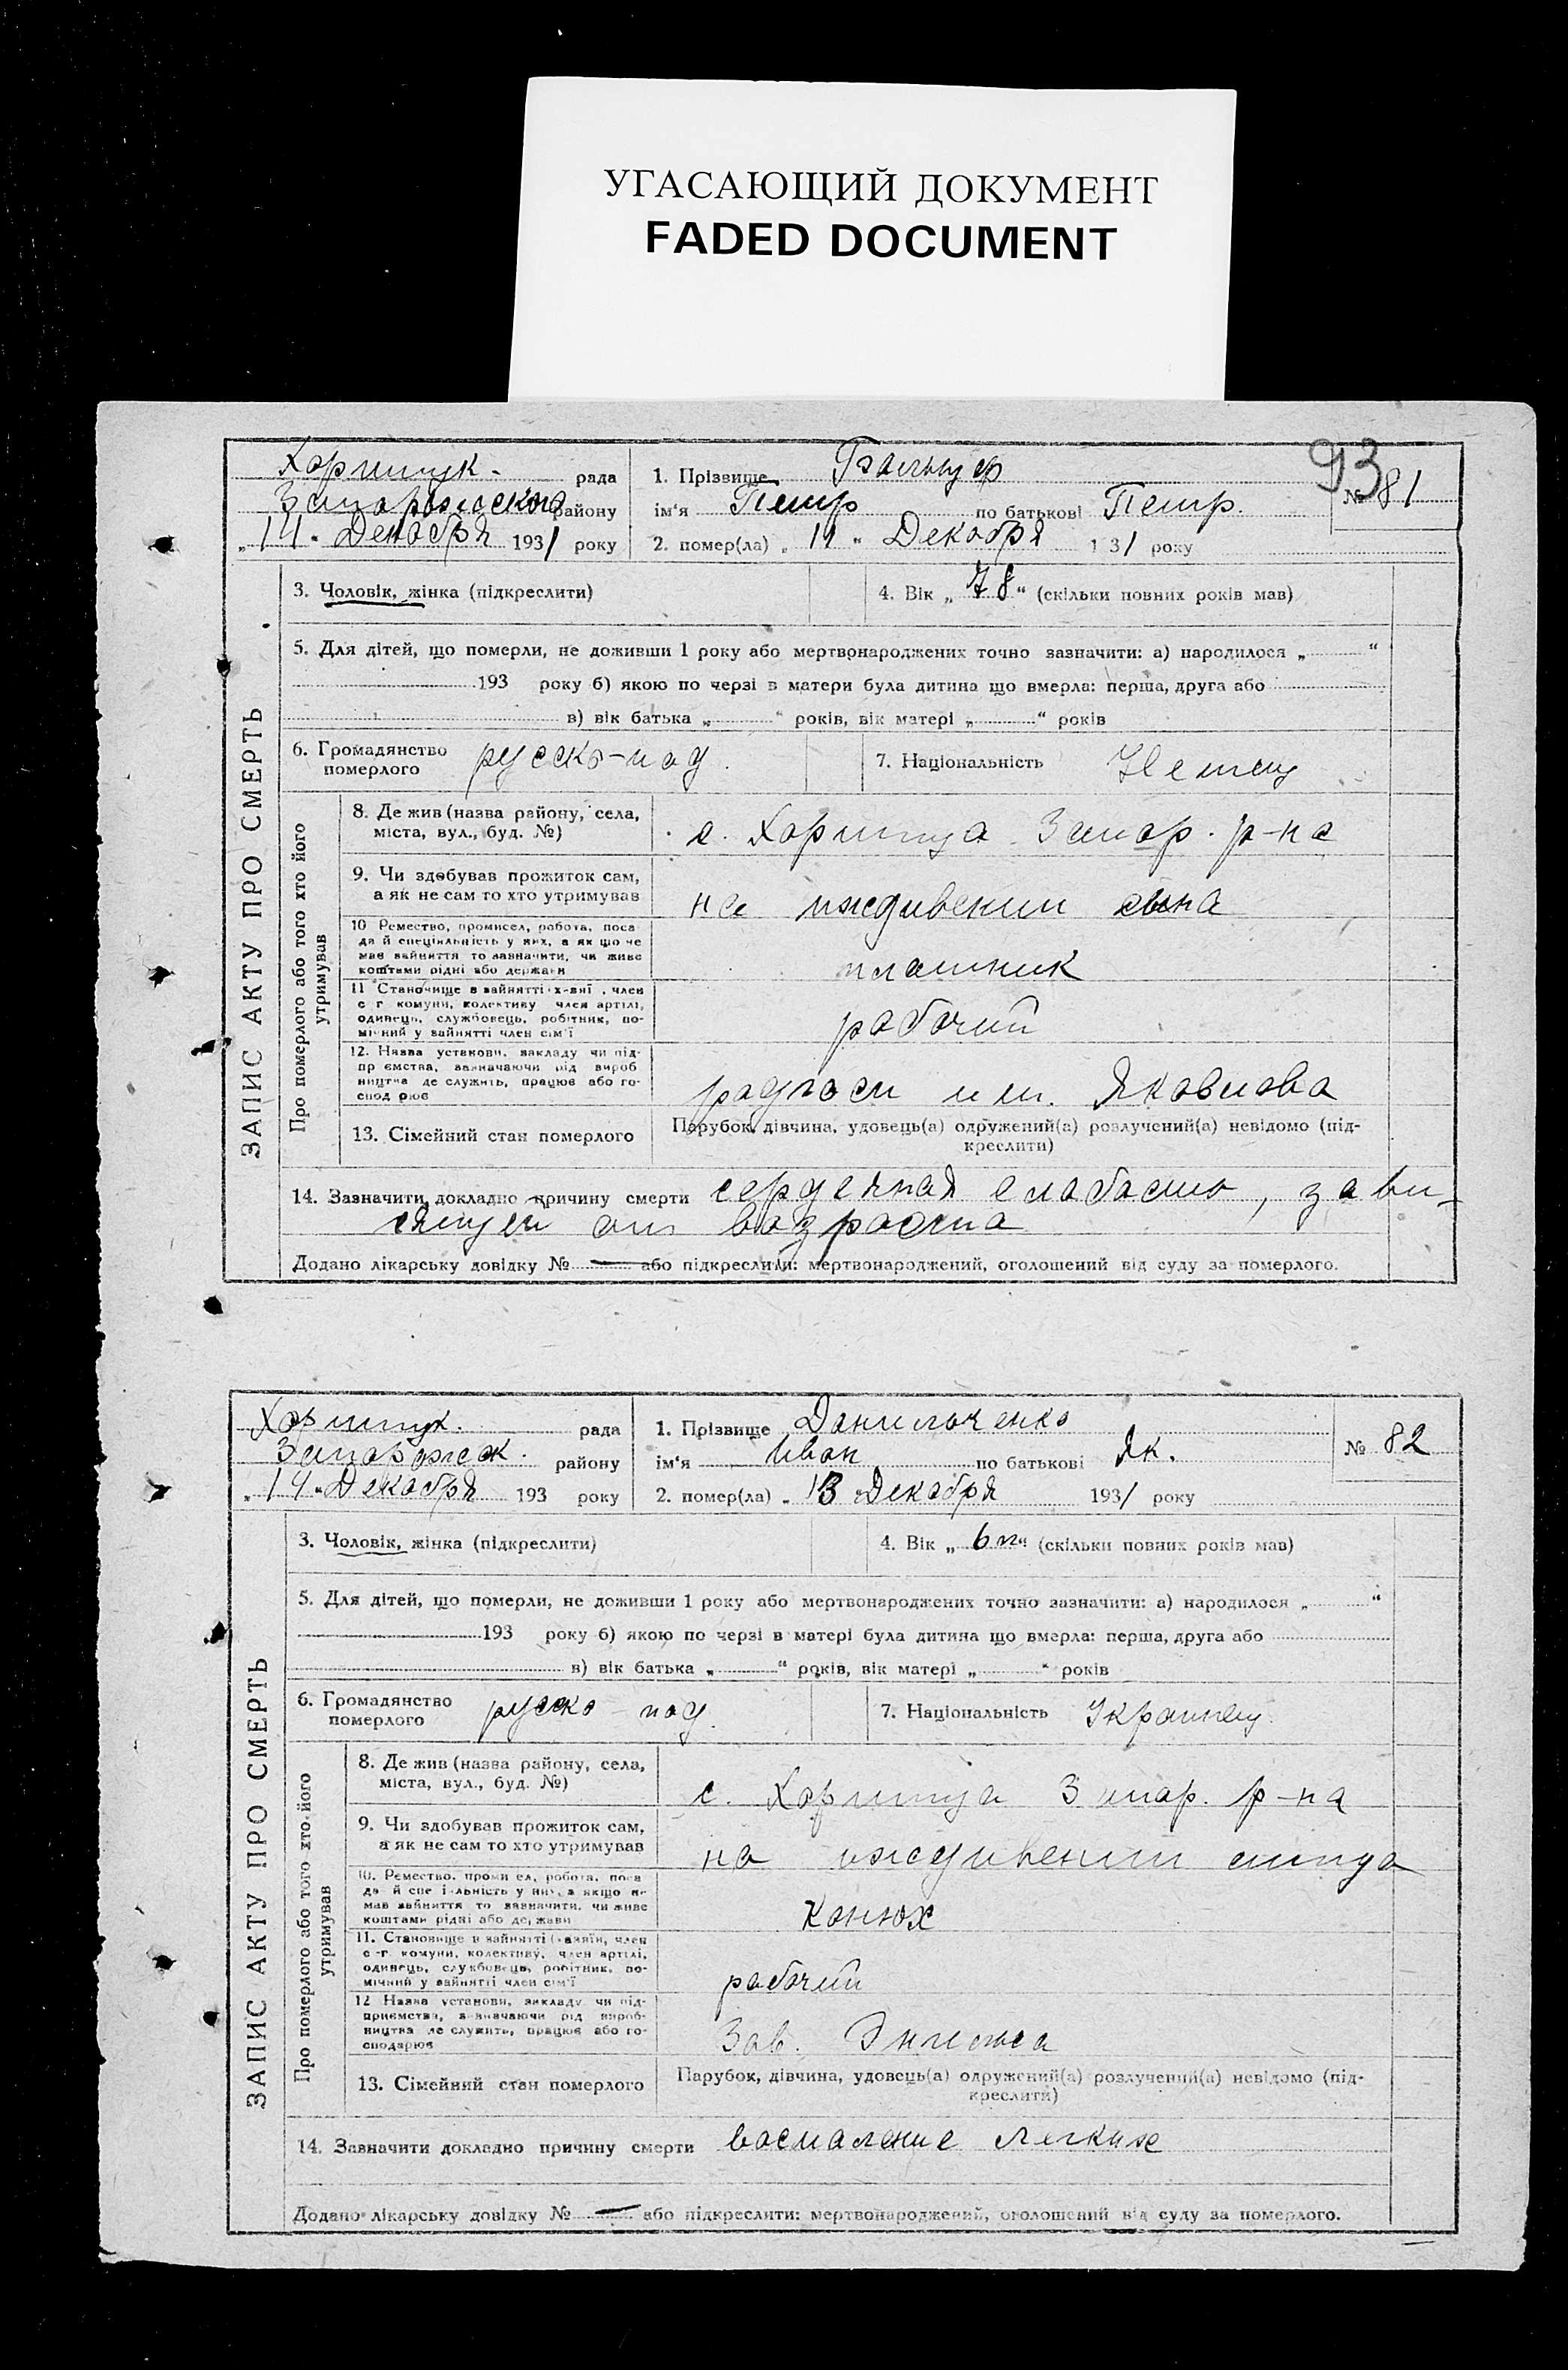 УГАСАЮЩИЙ ДОКУМЕНТ
FADED DOCUMENT
93
Хортицк. рада
Запорожского району
„14“ Декабря 1931 року
1. Прізвище
№ 81
ім'я Петр по батькові Петр.
2. помер(ла) „11“ Декабря 1 31 року
ЗАПИС АКТУ ПРО СМЕРТЬ
3. Чоловік, жінка (підкреслити)
4. Вік „78“ (скільки повних років мав)
5. Для дітей, що померли, не доживши 1 року або мертвонароджених точно зазначити: а) народилося „ “
193 року б) якою по черзі в матери була дитина що вмерла: перша, друга або
в) вік батька „ “ років, вік матері „ “ років
6. Громадянство
померлого
русско-под.
7. Національність Немец
Про померлого або того хто його
утримував
8. Де жив (назва району, села,
міста, вул., буд. №)
с. Хортица Запор. р-на
9. Чи здобував прожиток сам,
а як не сам то хто утримував
на иждивении сына
10 Ремество, промисел, робота, поса
да й спеціяльність у них, а як що не
має зайняття то зазначити, чи живе
коштами рідні або держави
плотник
11 Становище в зайнятті х-вні , член
с г комуни, колективу член артілі,
одинець, службовець, робітник, по-
мічний у зайнятті член сім'ї
рабочий
12. Назва установи, закладу чи під-
пр ємства, зазначаючи рід вироб
ництва де служить, працює або го-
спод рює
радгосп им. Яковлева
13. Сімейний стан померлого
Парубок, дівчина, удовець(а) одружений(а) розлучений(а) невідомо (під-
креслити)
14. Зазначити докладно причину смерти сердечная слабость, зави-
сящей от возраста
Додано лікарську довідку № — або підкреслили: мертвонароджений, оголошений від суду за померлого.
Хортицк. рада
Запорожск. району
„14“ Декабря 193 року
1. Прізвище Данильченко
№ 82
ім'я Иван по батькові Як.
2. помер(ла) „13 Декабря 1931 року
ЗАПИС АКТУ ПРО СМЕРТЬ
3. Чоловік, жінка (підкреслити)
4. Вік „ 6 “ (скільки повних років мав)
5. Для дітей, що померли, не доживши 1 року або мертвонароджених точно зазначити: а) народилося „ “
193 року б) якою по черзі в матері була дитина що вмерла: перша, друга або
в) вік батька „ “ років, вік матері „ “ років
6. Громадянство
померлого
русско-под.
7. Національність Украинец.
Про померлого або того хто його
утримував
8. Де жив (назва району, села,
міста, вул., буд. №)
с. Хортица Запор. р-на
9. Чи здобував прожиток сам,
а як не сам то хто утримував
на иждивении отца
10. Ремество, проми ел, робота, поса
да й спе і льність у них, а якщо не
мав зайняття то зазначити, чи живе
коштами рідні або держави
Конюх
11. Становище в зайнятті (хазяїн, член
с-г комуни, колективу, член артілі,
одинець, службовець, робітник, по-
мічний у зайнятті член сім'ї
рабочий
12 Назва установи, закладу чи під-
приємства, зазначаючи рід вироб-
ництва де служить, працює або го-
сподарює
Зав. Энгельса
13. Сімейний стан померлого
Парубок, дівчина, удовець(а) одружений(а) розлучений(а) невідомо (під-
креслити)
14. Зазначити докладно причину смерти воспаление легких
Додано лікарську довідку № — або підкреслити: мертвонароджений, оголошений від суду за померлого.